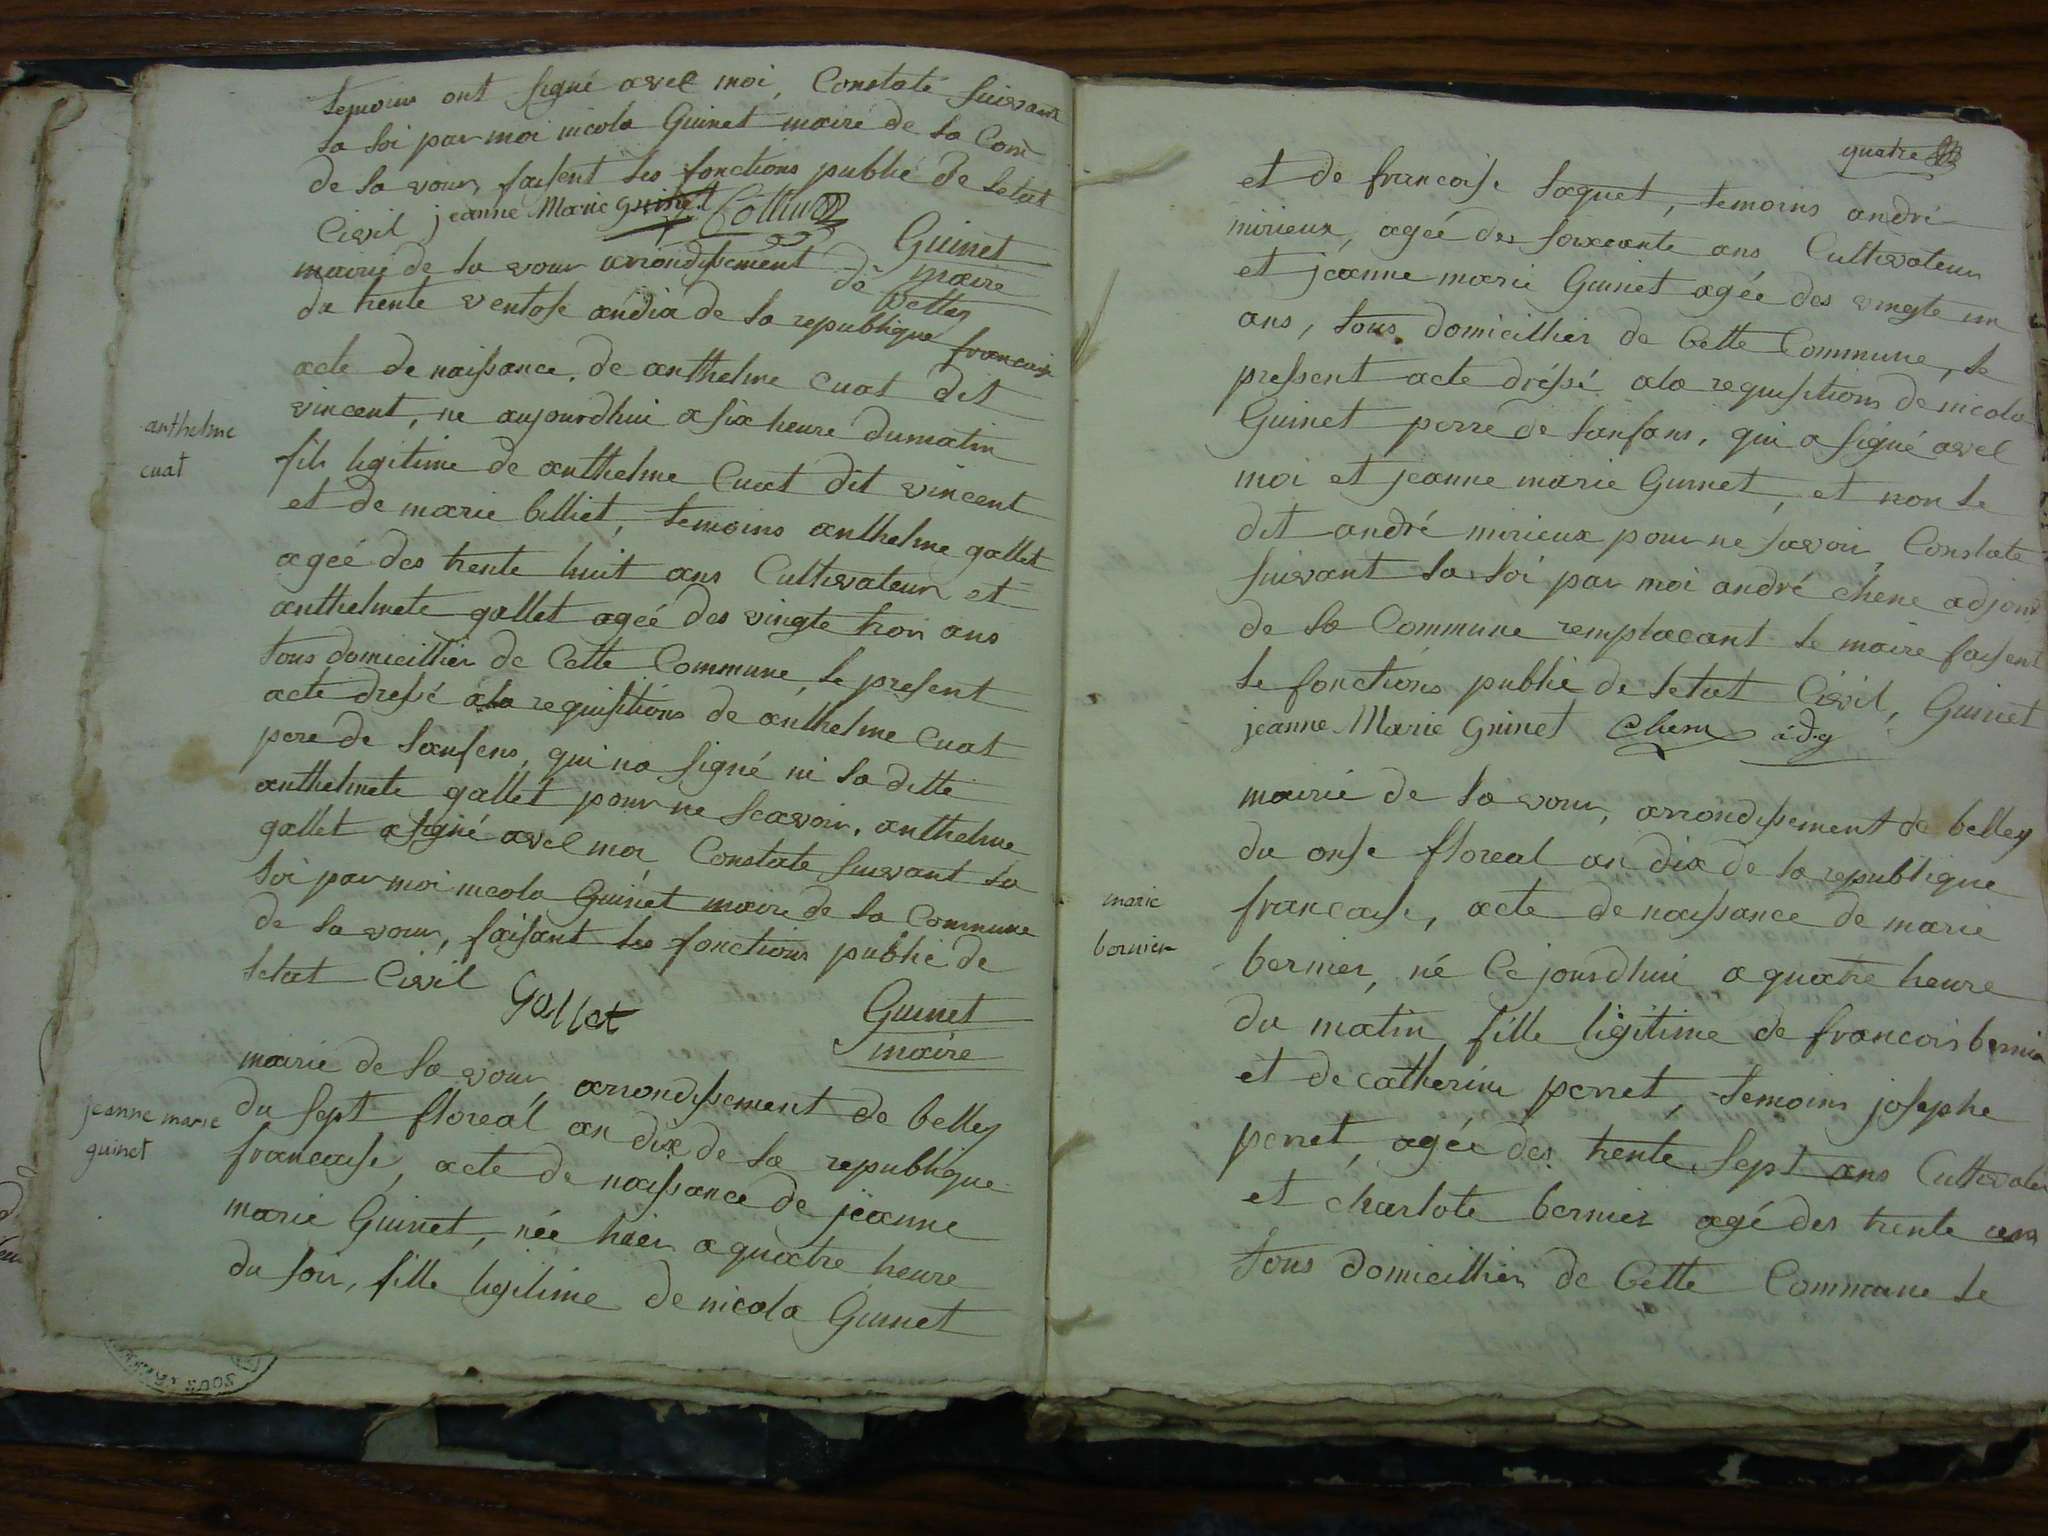 temoins ont signé avec moi, Constaté suivant
la loi par moi nicola Guinet maire de la Com
de la vour, faisent les fonctions public de letat
Civil jeanne Marie guinet Collin
Guinet
maire
mairie de la vour arrondissement de belley
du trente ventose an dix de la republique francaise
acte de naissance de anthelme cuat dit
vincent, ne aujourdhui a six heure du matin
fils legitime de anthelme Cuat dit vincent
et de marie billiet, temoins anthelme gallet
ageé des trente huit ans Cultivateur et
anthelmete gallet ageé des vingte troi ans
tous domicillier de Cette Commune, le present
acte dressé a la requisitions de anthelme Cuat
pere de lanfens, qui na signé ni la ditte
anthelmete gallet pour ne scavoir, anthelme
gallet a signé avec moi Constate suivant la
loi par moi nicola Guinet maire de la Commune
de la vour, faisant les fonctions public de
letat Civil Gallet
Guinet
maire
mairie de la vour, arrondissement de belley
du sept floreal an dix de la republique
francaise, acte de naissance de jeanne
marie Guinet, née hier a quatre heure
du soir, fille legitime de nicola Guinet
anthelme
cuat
jeanne marie
guinet
quatre
et de francoise Saquet, temoins andré
mirieux, ageé des soixante ans Cultivateur
et jeanne marie Guinet ageé des vingte un
ans, tous domicillier de Cette Commune, le
pressent acte dréssé a la requisitions de nicola
Guinet perre de lanfans, qui a signé avec
moi et jeanne marie Guinet, et non le
dit andré mirieux pour ne savoir, Constate
suivant la loi par moi andré chene adjoint
de la Commune remplacant le maire faisent
le fonctions public de letat Civil, Guinet
jeanne Marie guinet Chene adg
mairie de la vour, arrondissement de belley
du onse floreal an dix de la republique
francaise, acte de naissance de marie
bernier, né Ce jourdhui a quatre heure
du matin fille ligitime de francois bernier
et de catherine perret, temoins josephe
perret, ageé des trente sept ans Cultivateur
et charlote bernier agé des trente ans
tous domicillier de Cette Commune le
marie
bernier